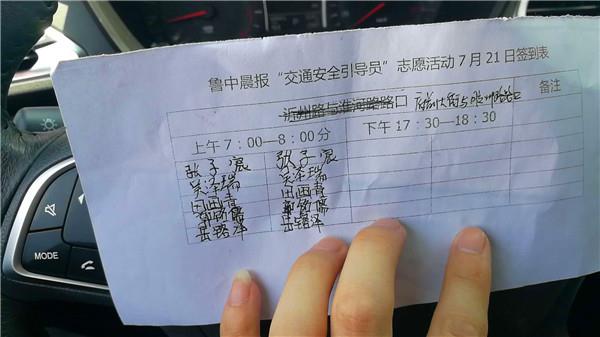 鲁中晨报“交通安全引导员”志愿活动7月21日签到表
沂州路与淮河路路口 备注
上午7：00—8：00分 下午17：30—18：30
张子宸 张子宸
吴泽瑞 吴泽瑞
田雨青 田雨青
岳锴泽 岳锴泽
MODE